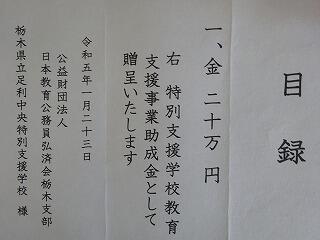 目録
一、金 二十万 円
右 特別支援学校教育
支援事業助成金として
贈呈いたします
令和五年一月二十三日
公益財団法人
日本教育公務員弘済会栃木支部
栃木県立足利中央特別支援学校 様